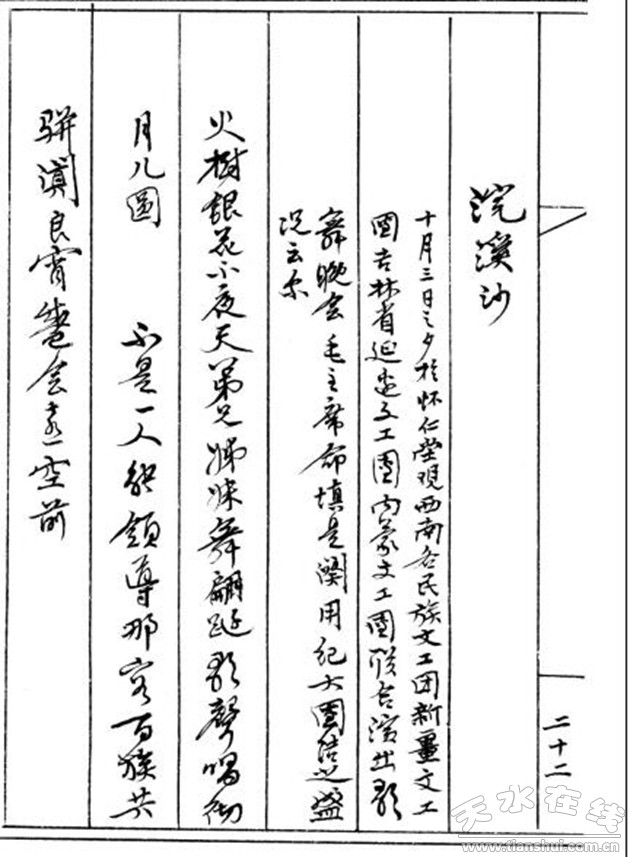 二十二
浣溪沙
十月三日之夕於怀仁堂观西南各民族文工团新疆文工
團吉林省延边文工團内蒙文工團联合演出歌
舞晚会 毛主席命填是阕用纪大團结之盛
况云尔
火树银花不夜天弟兄姊妹舞翩跹歌聲唱彻
月儿圆 不是一人能领导那容百族共
骈阗良宵盛会喜空前
天水在线
www.tianshui.com.cn